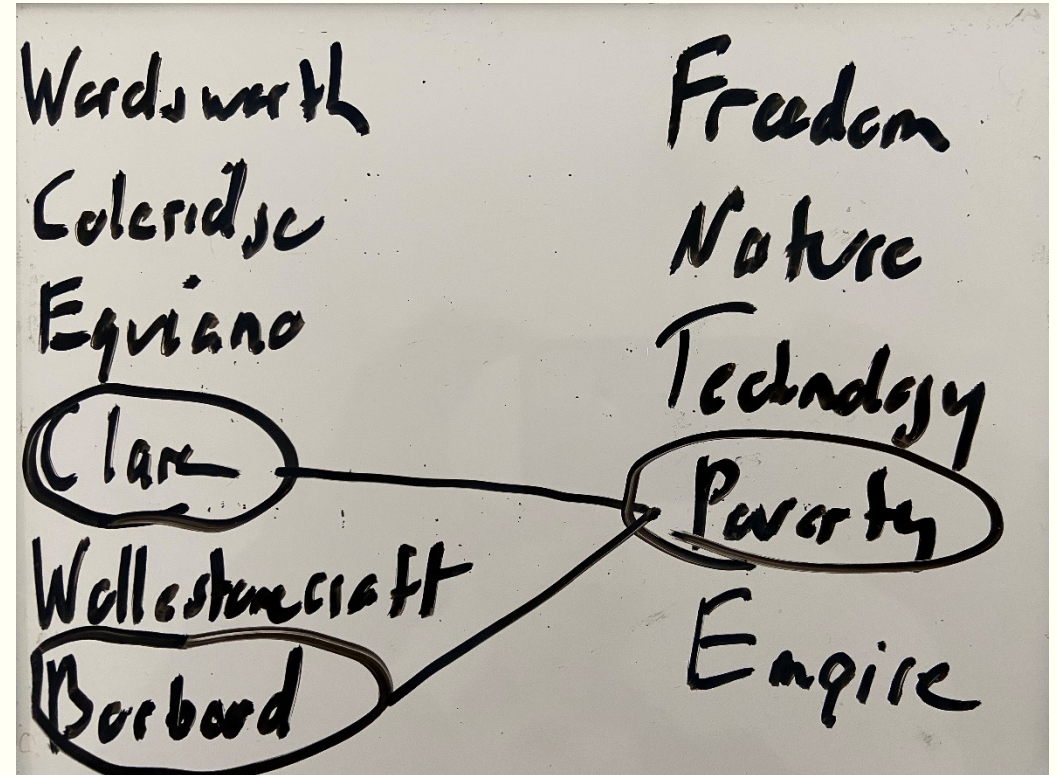 Wordsworth
Coleridge
Equiano
Clare
Wollestonecraft
Barbard
Freedom
Nature
Technology
Poverty
Empire